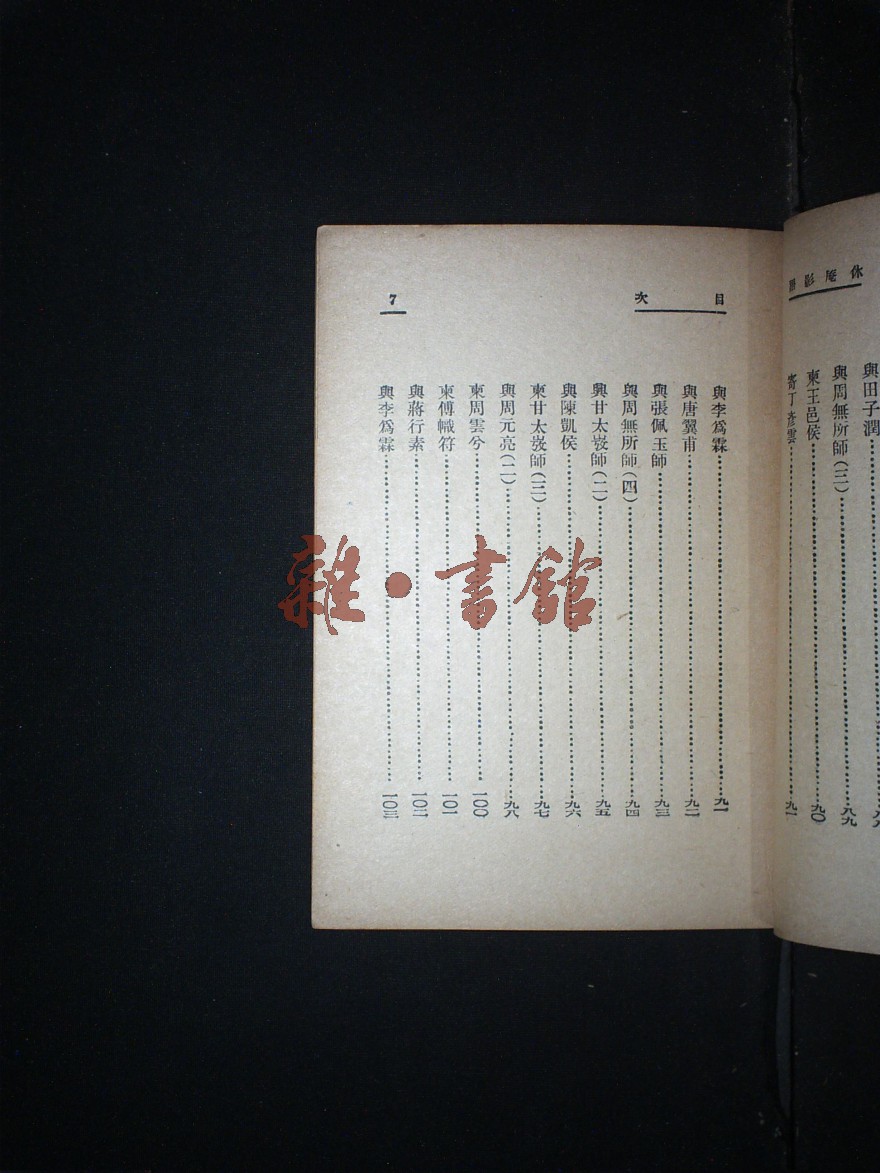 休庵影
與田子潤
與周無所師(三)……八九
柬王邑侯……九〇
寄丁彥雲……九一
目次
7
與李爲霖……九一
與唐翼甫……九二
與張佩玉師……九三
與周無所師(四)……九四
與甘太㟲師(二)……九五
與陳凱侯……九六
柬甘太㟲師(三)……九七
與周元亮(二)……九八
柬周雲兮……一〇〇
柬傅幟符……一〇一
與蔣行素……一〇二
與李爲霖……一〇三
雜·書館